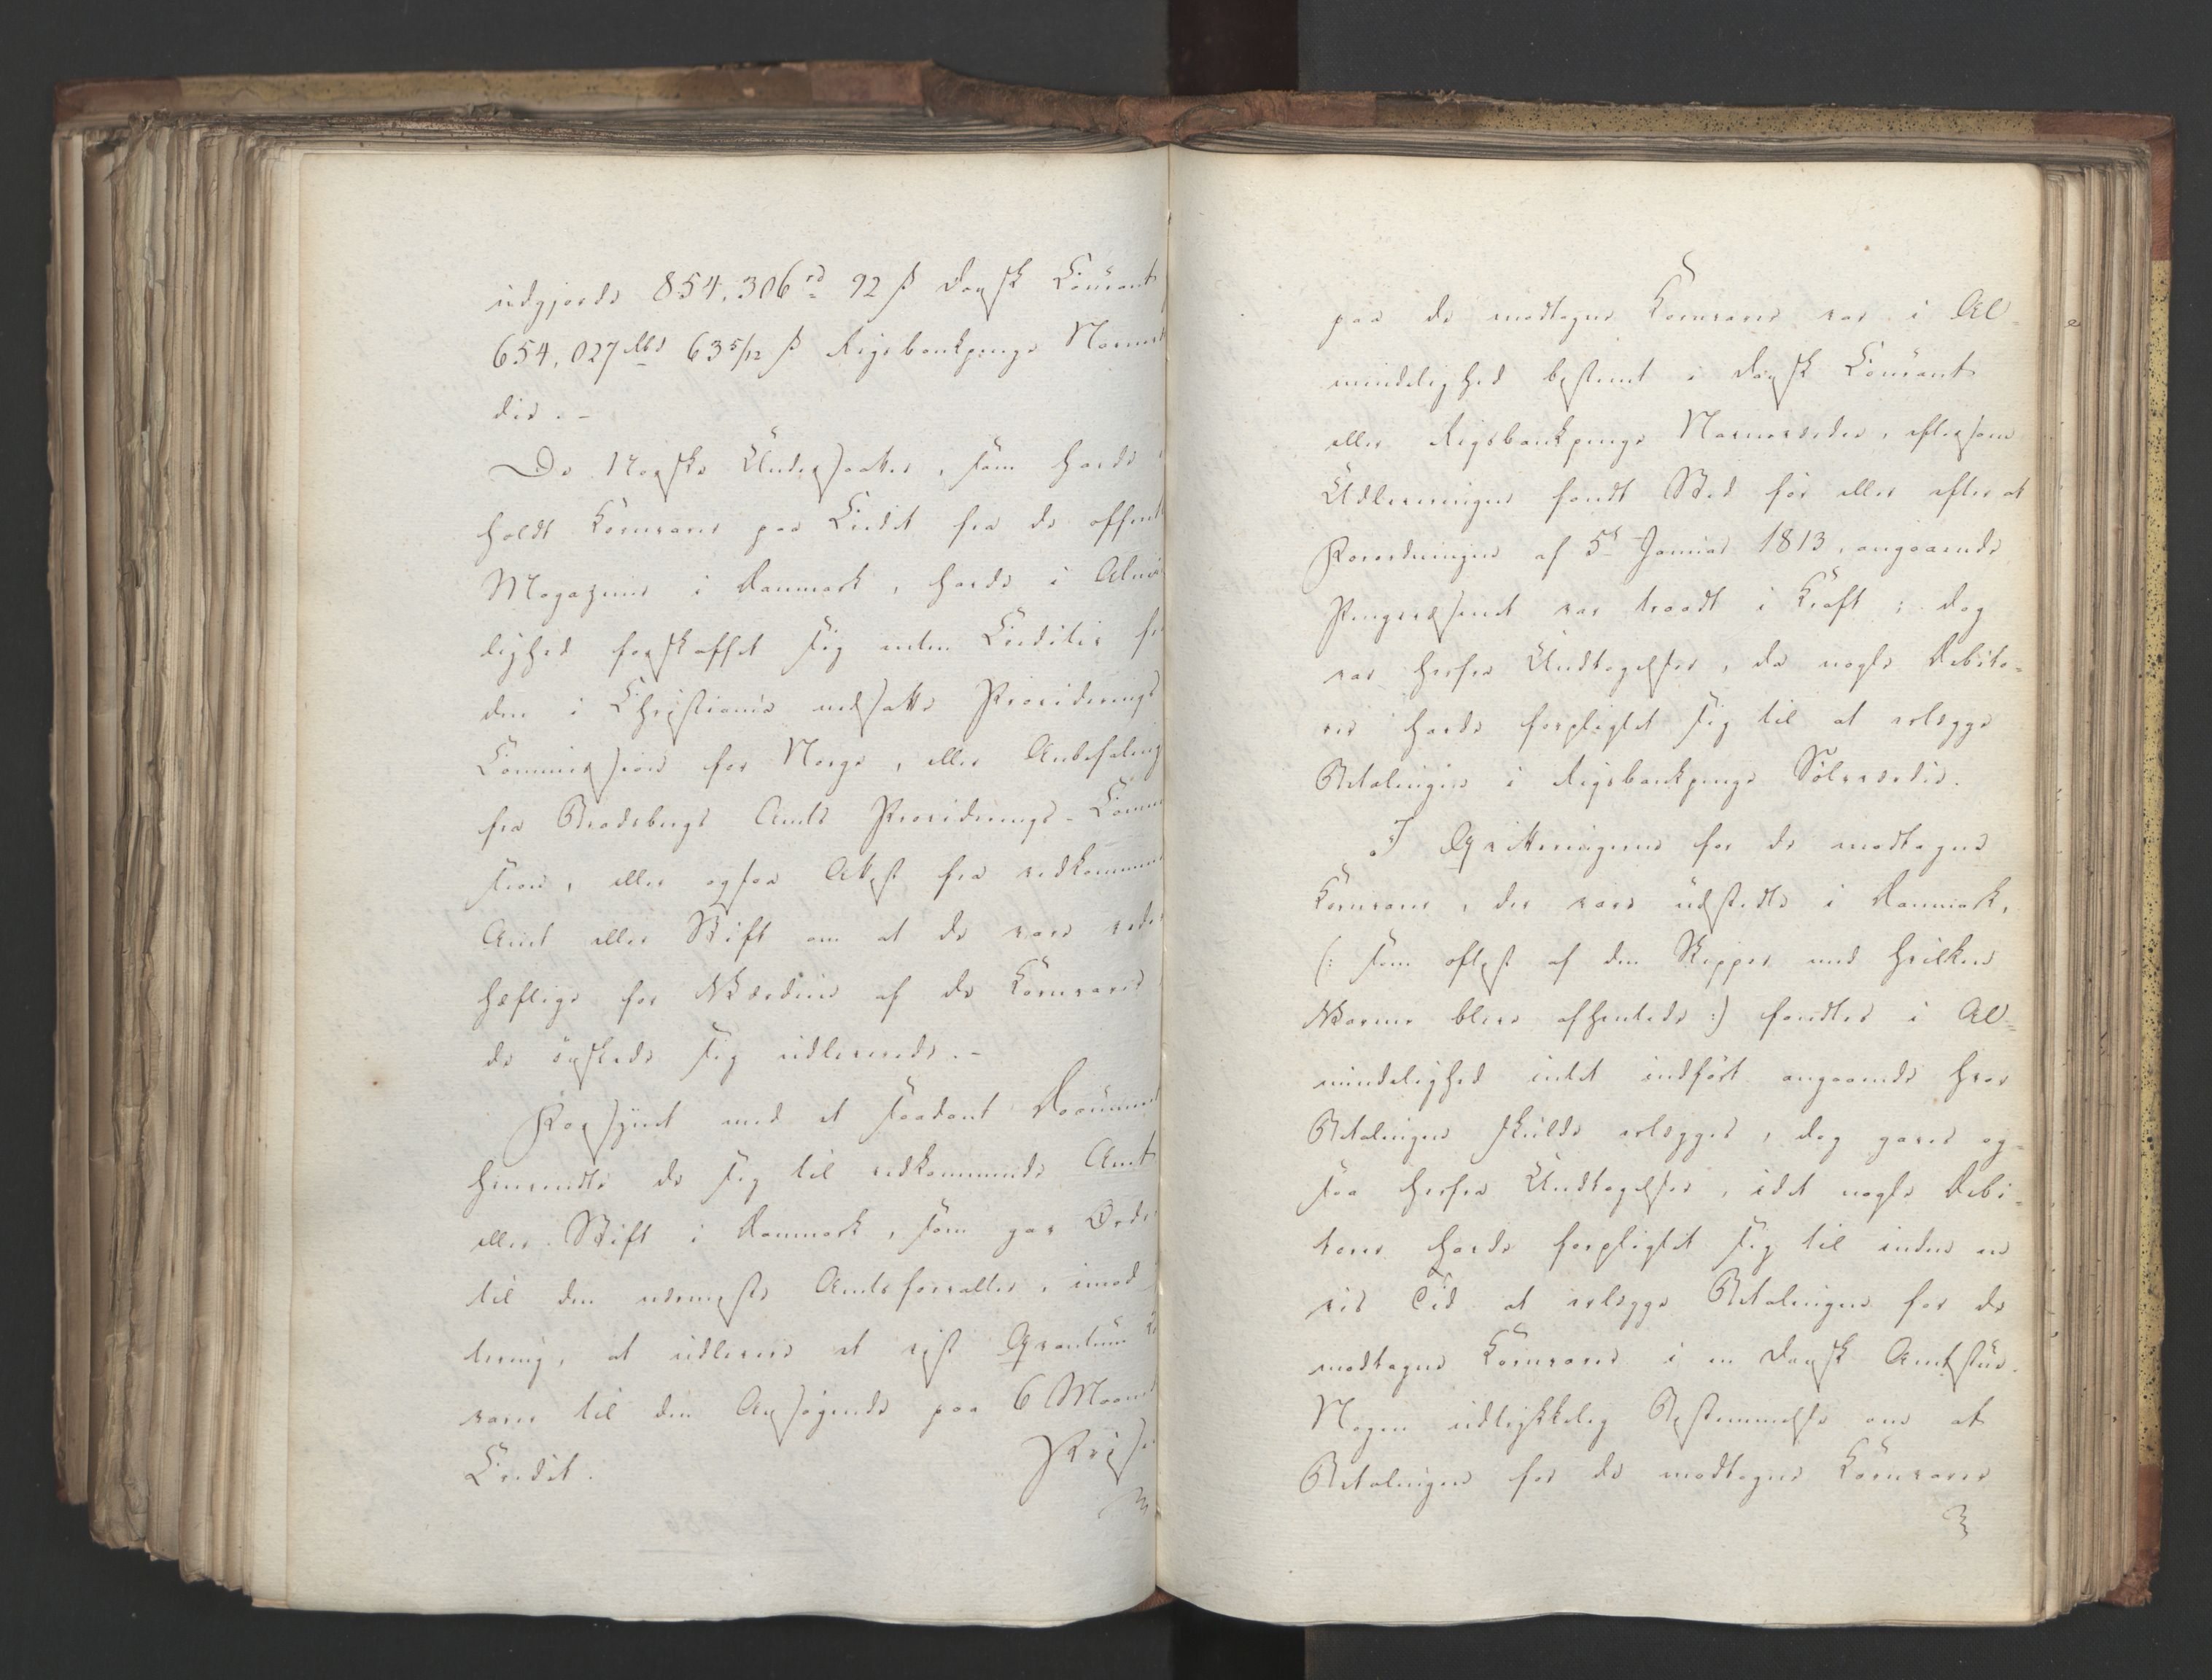 udgjorde 854.306 rd 92 ß dansk Courant
654.027 rbd 63 5/12 ß Rigsbankpenge Navnevær
die. -
De Norske Undersaatter, som havde
holdt Kornvarer paa Credit fra de offentl
Magaziner i Danmark, havde i Almin
delighed forskaffet sig enten Creditiv fra
den i Christiania nedsatte Providerings
Commission for Norge, eller Anbefaling
fra Bradsbergs Amts Providerings-Commi
sion, eller ogsaa Attest fra vedkommende
Amt eller Stift om at de vare vede
hæftige for Værdien af de Kornvarer
de ønskede sig udleverede. -
Forsynet med et saadant Document
henvendte de sig til vedkommende Amt
eller Stift i Danmark, som gav Ordre
til den nærmeste Amtsforvalter, imod
tering, at udlevere et vist Qvantum
varer til den Ansøgende paa 6 Maaneders
Credit.
Prisen
paa de modtagne Kornvarer var i Al-
mindelighed bestemt i dansk Courant
eller Rigsbankpenge Navneværdie, eftersom
Udleveringen fandt Sted før eller efter at
Forordningen af 5te Januar 1813, angaaende
Pengevæsenet var traadt i Kraft; dog
var herfra Undtagelser, da nogle Debito-
rer havde forpligtet sig til at erlægge
Betalingen i Rigsbankpenge Sølvværdie.
I Qvitteringerne for de modtagne
Kornvarer, der vare udstedte i Danmark,
(: som oftest af den Skipper med hvilken
Varerne bleve afhentede :) fandtes i Al=
mindelighed intet indført angaaende hvor
Betalingen skulde erlægges, dog gaves og-
saa herfra Undtagelser, idet nogle Debi-
torer havde forpligtet sig til inden en
vis Tid at erlægge Betalingen for de
modtagne Kornvarer i en dansk Amtstue.
Nogen udtrykkelig Bestemmelse om at
Betalingen for de modtagne Kornvarer